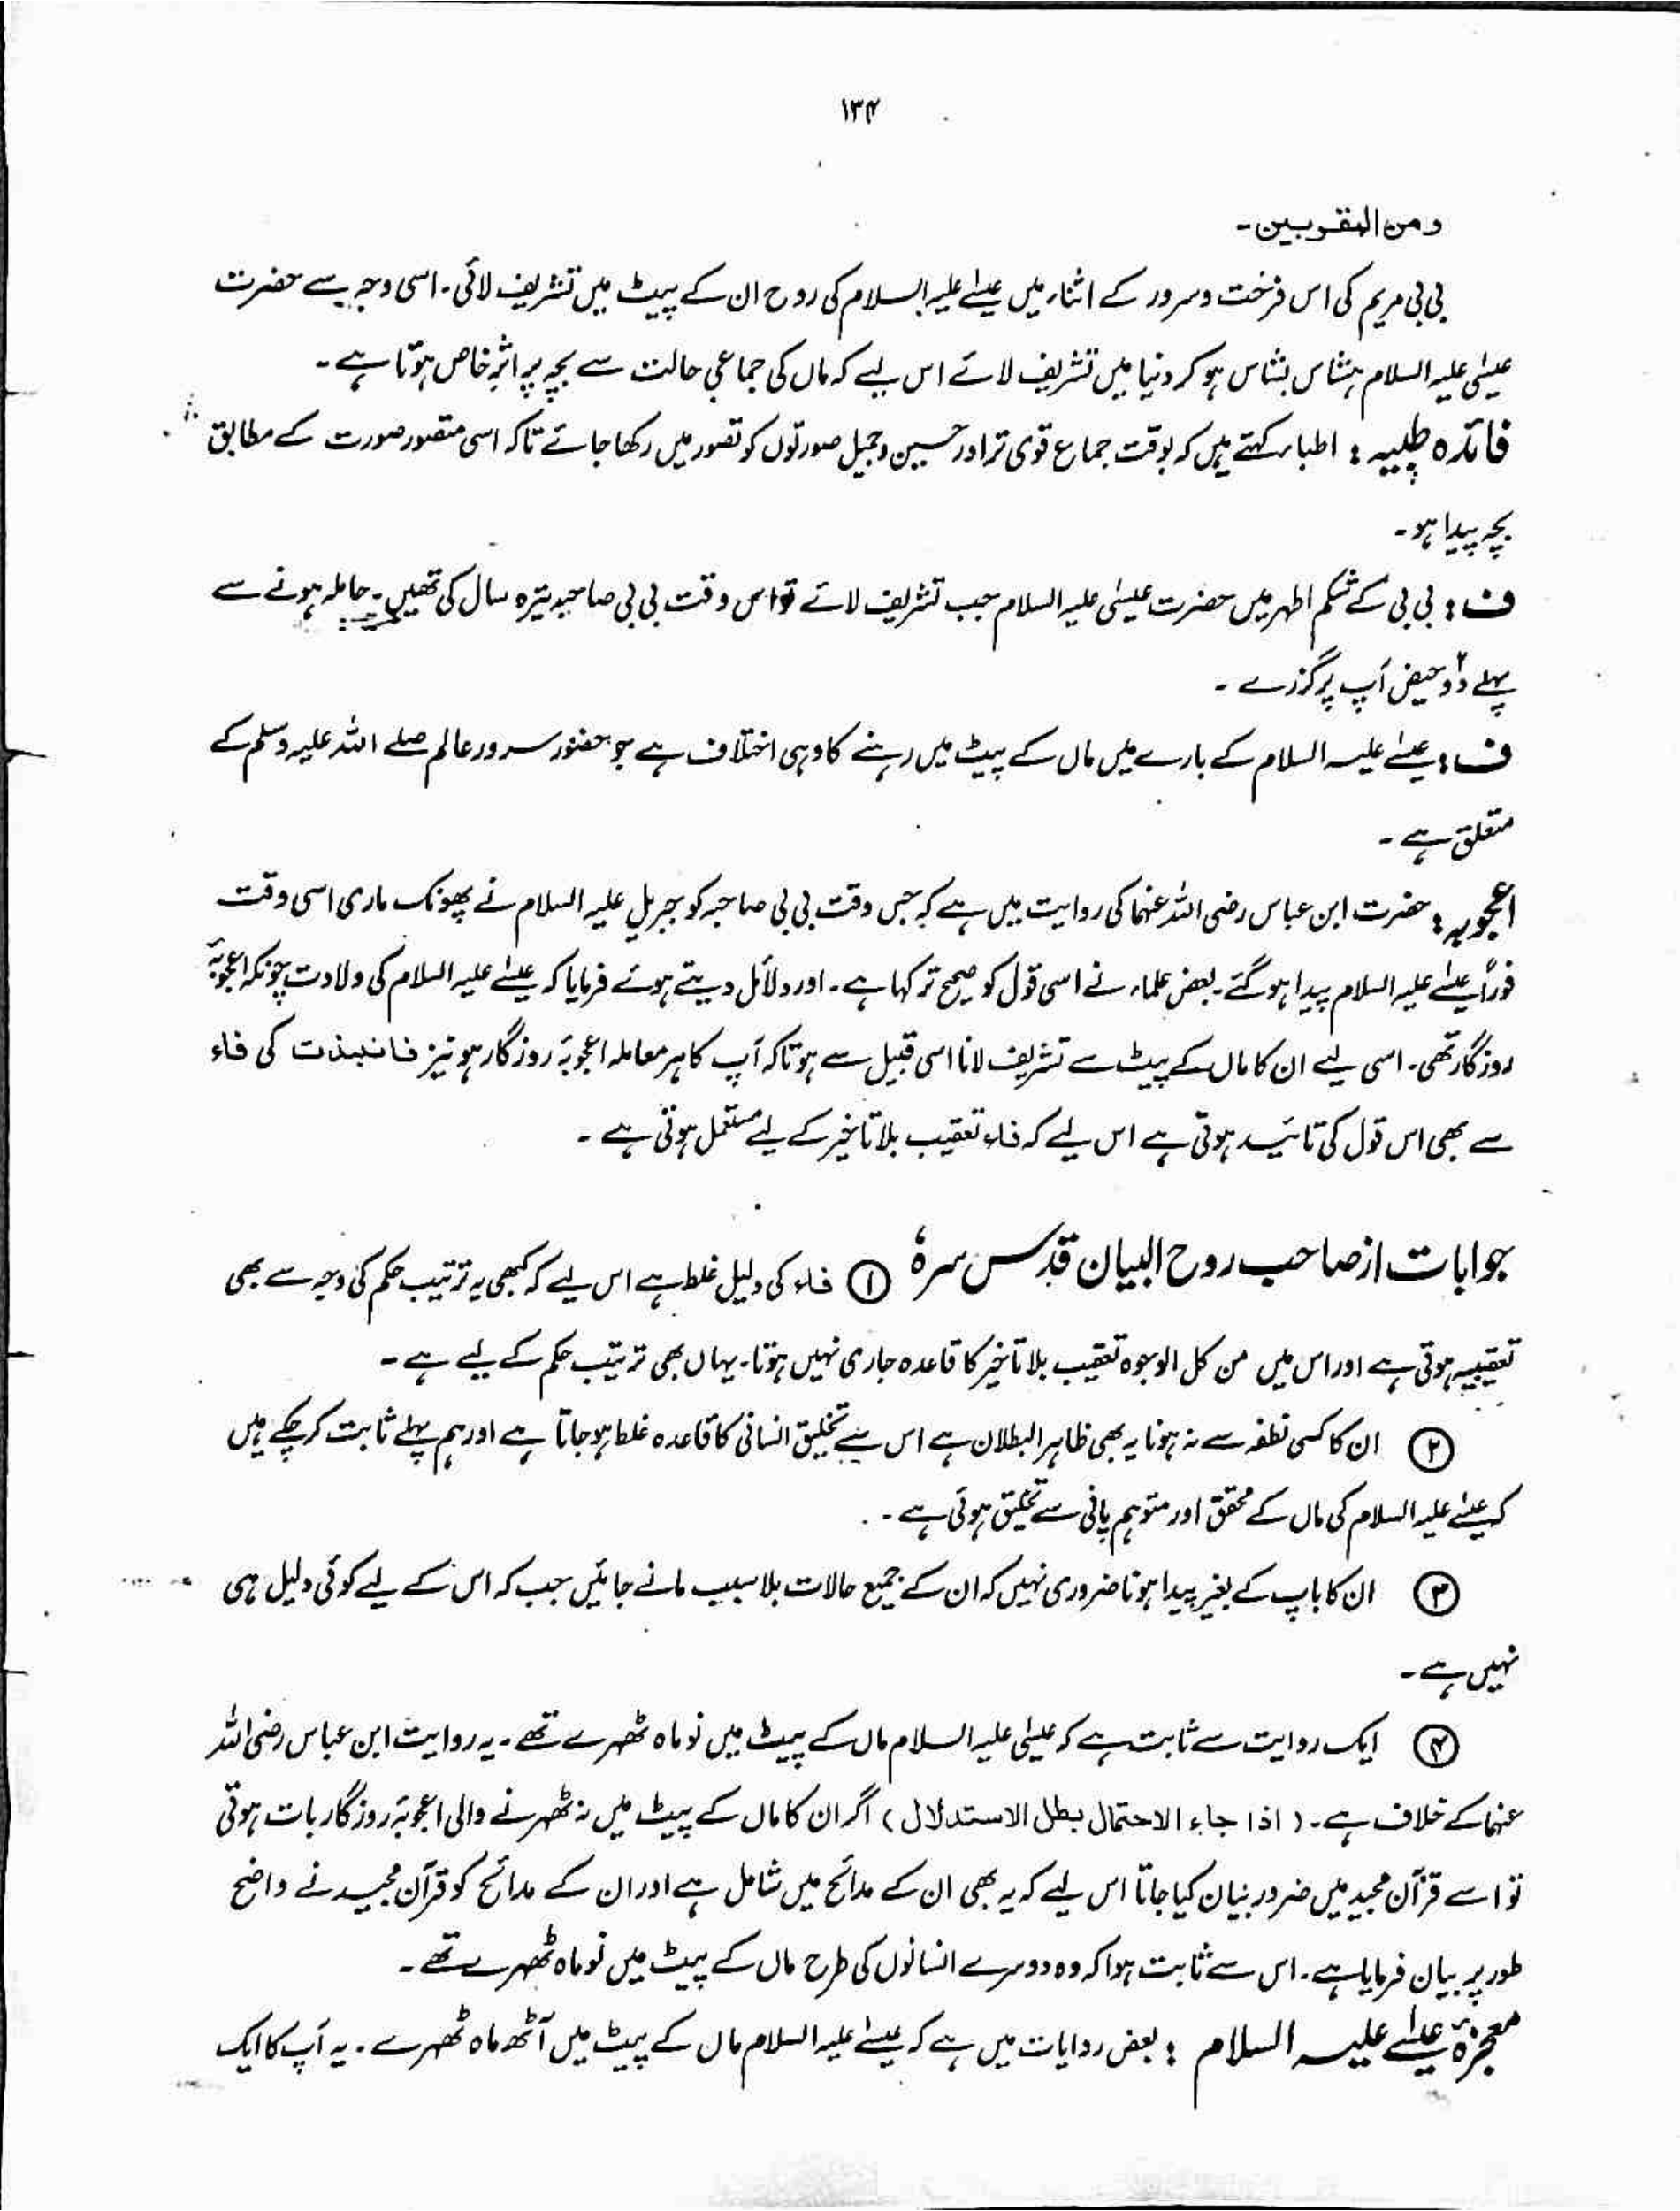 ۱۳۴
ومن المقربین۔
بی بی مریم کی اس فرخت وسرور کے اثناء میں عیسٰے علیہ السلام کی روح ان کے پیٹ میں تشریف لائی۔ اسی وجہ سے حضرت
عیسٰی علیہ السلام ہشاس بشاس ہو کر دنیا میں تشریف لائے اس لیے کہ ماں کی جماعی حالت سے بچہ پر اثرِ خاص ہوتا ہے۔
فائدہ طبیہ : اطباء کہتے ہیں کہ بوقت جماع قوی تر اور حسین وجمیل صورتوں کو تصور میں رکھا جائے تاکہ اسی متصور صورت کے مطابق
بچہ پیدا ہو۔
ف : بی بی کے شکم اطہر میں حضرت عیسٰی علیہ السلام جب تشریف لائے تو اس وقت بی بی صاحبہ تیرہ سال کی تھیں۔ حاملہ ہونے سے
پہلے دو۲ حیض آپ پر گزرے ۔
ف : عیسٰے علیہ السلام کے بارے میں ماں کے پیٹ میں رہنے کا وہی اختلاف ہے جو حضور سرور عالم صلے اللہ علیہ وسلم کے
متعلق ہے ۔
اعجوبہ : حضرت ابن عباس رضی اللہ عنہما کی روایت میں ہے کہ جس وقت بی بی صاحبہ کو جبریل علیہ السلام نے پھونک ماری اسی وقت
فوراً عیسٰے علیہ السلام پیدا ہو گئے۔ بعض علماء نے اسی قول کو صحیح تر کہا ہے۔ اور دلائل دیتے ہوئے فرمایا کہ عیسٰے علیہ السلام کی ولادت چونکہ اعجوبۂ
روزگار تھی۔ اسی لیے ان کا ماں کے پیٹ سے تشریف لانا اسی قبیل سے ہو تاکہ آپ کا ہر معاملہ اعجوبۂ روزگار ہو نیز فانبذت کی فاء
سے بھی اس قول کی تائید ہوتی ہے اس لیے کہ فاء تعقیب بلا تاخیر کے لیے مستعمل ہوتی ہے ۔
جوابات از صاحب روح البیان قدس سرہٗ ① فاء کی دلیل غلط ہے اس لیے کہ کبھی یہ ترتیب حکم کی وجہ سے بھی
تعقیبیہ ہوتی ہے اور اس میں من کل الوجوہ تعقیب بلا تاخیر کا قاعدہ جاری نہیں ہوتا۔ یہاں بھی ترتیب حکم کے لیے ہے ۔
② ان کا کسی نطفہ سے نہ ہونا یہ بھی ظاہر البطلان ہے اس سے تخلیق انسانی کا قاعدہ غلط ہو جاتا ہے اور ہم پہلے ثابت کر چکے ہیں
کہ عیسٰے علیہ السلام کی ماں کے محقق اور متوہم پانی سے تخلیق ہوئی ہے ۔
③ ان کا باپ کے بغیر پیدا ہونا ضروری نہیں کہ ان کے جمیع حالات بلا سبب مانے جائیں جب کہ اس کے لیے کوئی دلیل ہی
نہیں ہے ۔
④ ایک روایت سے ثابت ہے کہ عیسٰی علیہ السلام ماں کے پیٹ میں نو ماہ ٹھہرے تھے ۔ یہ روایت ابن عباس رضی اللہ
عنہما کے خلاف ہے ۔ ( اذا جاء الاحتمال بطل الاستدلال ) اگر ان کا ماں کے پیٹ میں نہ ٹھہرنے والی اعجوبۂ روزگار بات ہوتی
تو اسے قرآن مجید میں ضرور بیان کیا جاتا اس لیے کہ یہ بھی ان کے مدائح میں شامل ہے اور ان کے مدائح کو قرآن مجید نے واضح
طور پر بیان فرمایا ہے ۔ اس سے ثابت ہوا کہ وہ دوسرے انسانوں کی طرح ماں کے پیٹ میں نو ماہ ٹھہرے تھے ۔
معجزۂ عیسٰے علیہ السلام : بعض روایات میں ہے کہ عیسٰے علیہ السلام ماں کے پیٹ میں آٹھ ماہ ٹھہرے ۔ یہ آپ کا ایک